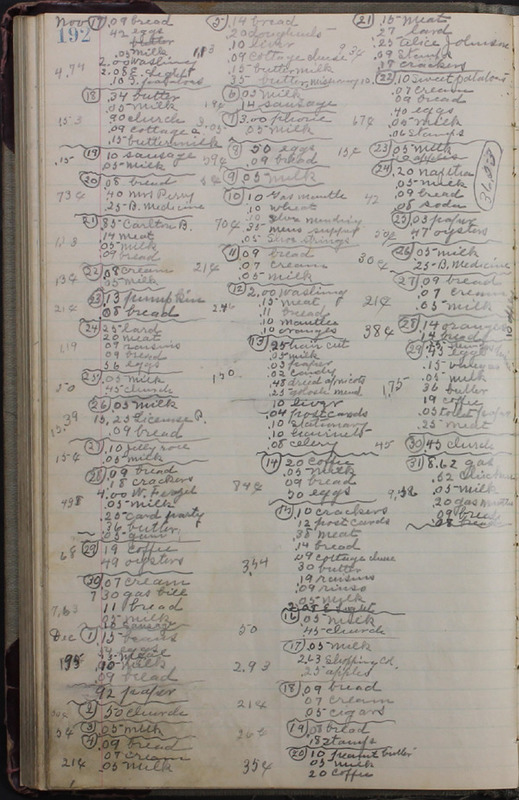 192
Nov 17 .09 bread
42 eggs
butter
.05 milk
2.00 washing
4.74 2.08 E. Light
10 S. potatoes
18 .34 butter
.05 milk
153 90 church
.09 cottage c
.15 buttermilk
19 10 sausage
.15 05 milk
20 08 bread
73¢ 40 Mrs Perry
25 B. Medicine
21 85 Carlton B.
14 meat
113 05 milk
09 bread
22 08 cream
13¢ 05 milk
23 13 pumpkin
21¢ 08 bread
24 25 lard
20 meat
1,19 09 raisins
09 bread
56 eggs
25 05 milk
50 45 church
26 .05 milk
15,39 15,25 License P.
.09 bread
27 10 jelly roll
15¢ .05 milk
28 .09 bread
.18 crackers
4.00 W.
498 .05 milk
.25 card party
36 butter
.05 gum
29 19 coffee
68 49 oysters
30 07 cream
7 30 gas bill
11 bread
7,63 05 milk
10 sausage
Dec 1 15 beans
54 eggs
195 10 milk
.09 bread
92 paper
2 50 church
5¢ 3 05 milk
4 09 bread
07 cream
21¢ 05 milk
5 14 bread
20 doughnuts
10 liver
1,13 09 cottage cheese
.15 buttermilk
35 butter
6 05 milk
19¢ 14 sausage
7 3.00 phone
3.05 .05 milk
8 50 eggs
59¢ .09 bread
5¢ 9 05 milk
10 10 Gas mantle
10 wheat
10 shoe mending
70¢ 35 mens supper
.05 shoe strings
11 09 bread
21¢ .07 cream
.05 milk
12 2,00 washing
15 meat
2.46 .11 bread
.10 mantles
.10 oranges
13 25 hair cut
.05 milk
.03 paper
.02 candy
.48 dried apricots
25 golosh mend
10 liver
.04 postcards
.10 stationary
.08 celery
14 20 coffee
.05 milk
84¢ 09 bread
50 eggs
15 10 crackers
12 post cards
38 meat
14 bread
3,54 09 cottage cheese
30 butter
19 raisins
.09 rinso
05 milk
2.08 E Light
16 05 milk
50 45 church
17 .05 milk
2.93 2.63 Shopping Ch.
25 apples
18 .09 bread
21¢ 07 cream
05 cigars
19 08 bread
26¢ 18 stamps
20 10 peanut butter
35¢ 05 milk
20 coffee
21 .15 meat
27 lard
.25 Felice Johnson
.09 Stamps
.17 crackers
22 10 sweet potatoes
.07 cream
09 bread
.40 eggs
67¢ .05 milk
.06 stamps
23 05 milk
15¢ 10 apples
24 .20 naptha
.05 milk
.09 bread
42 08 soda
25 03 paper
50¢ 47 oysters
26 05 milk
30¢ 25 B. Medicine
27 .09 bread
.07 cream
21¢ .05 milk
28 14 oranges
38¢ 14 bread
29 45 eggs
.15 vinegar
.05 milk
1,75 36 butter
19 coffee
.05 toilet paper
25 meat
45 30 45 church
31 8.62 gas
.52 chicken
9,58 .05 milk
20 gas mantles
09 bread